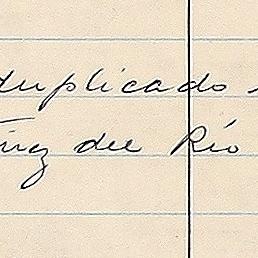 duplicado
del Río